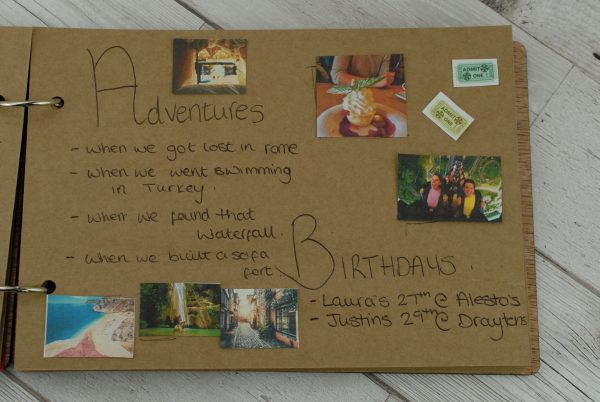 Adventures
- when we got lost in rome
- when we went swimming
in Turkey.
- when we found that
waterfall.
- when we built a sofa
fort.
ADMIT
ONE!
ADMIT
ONE!
BIRTHDAYS.
- Laura's 27th @ Alesto's
- Justins 29th @ Draytons